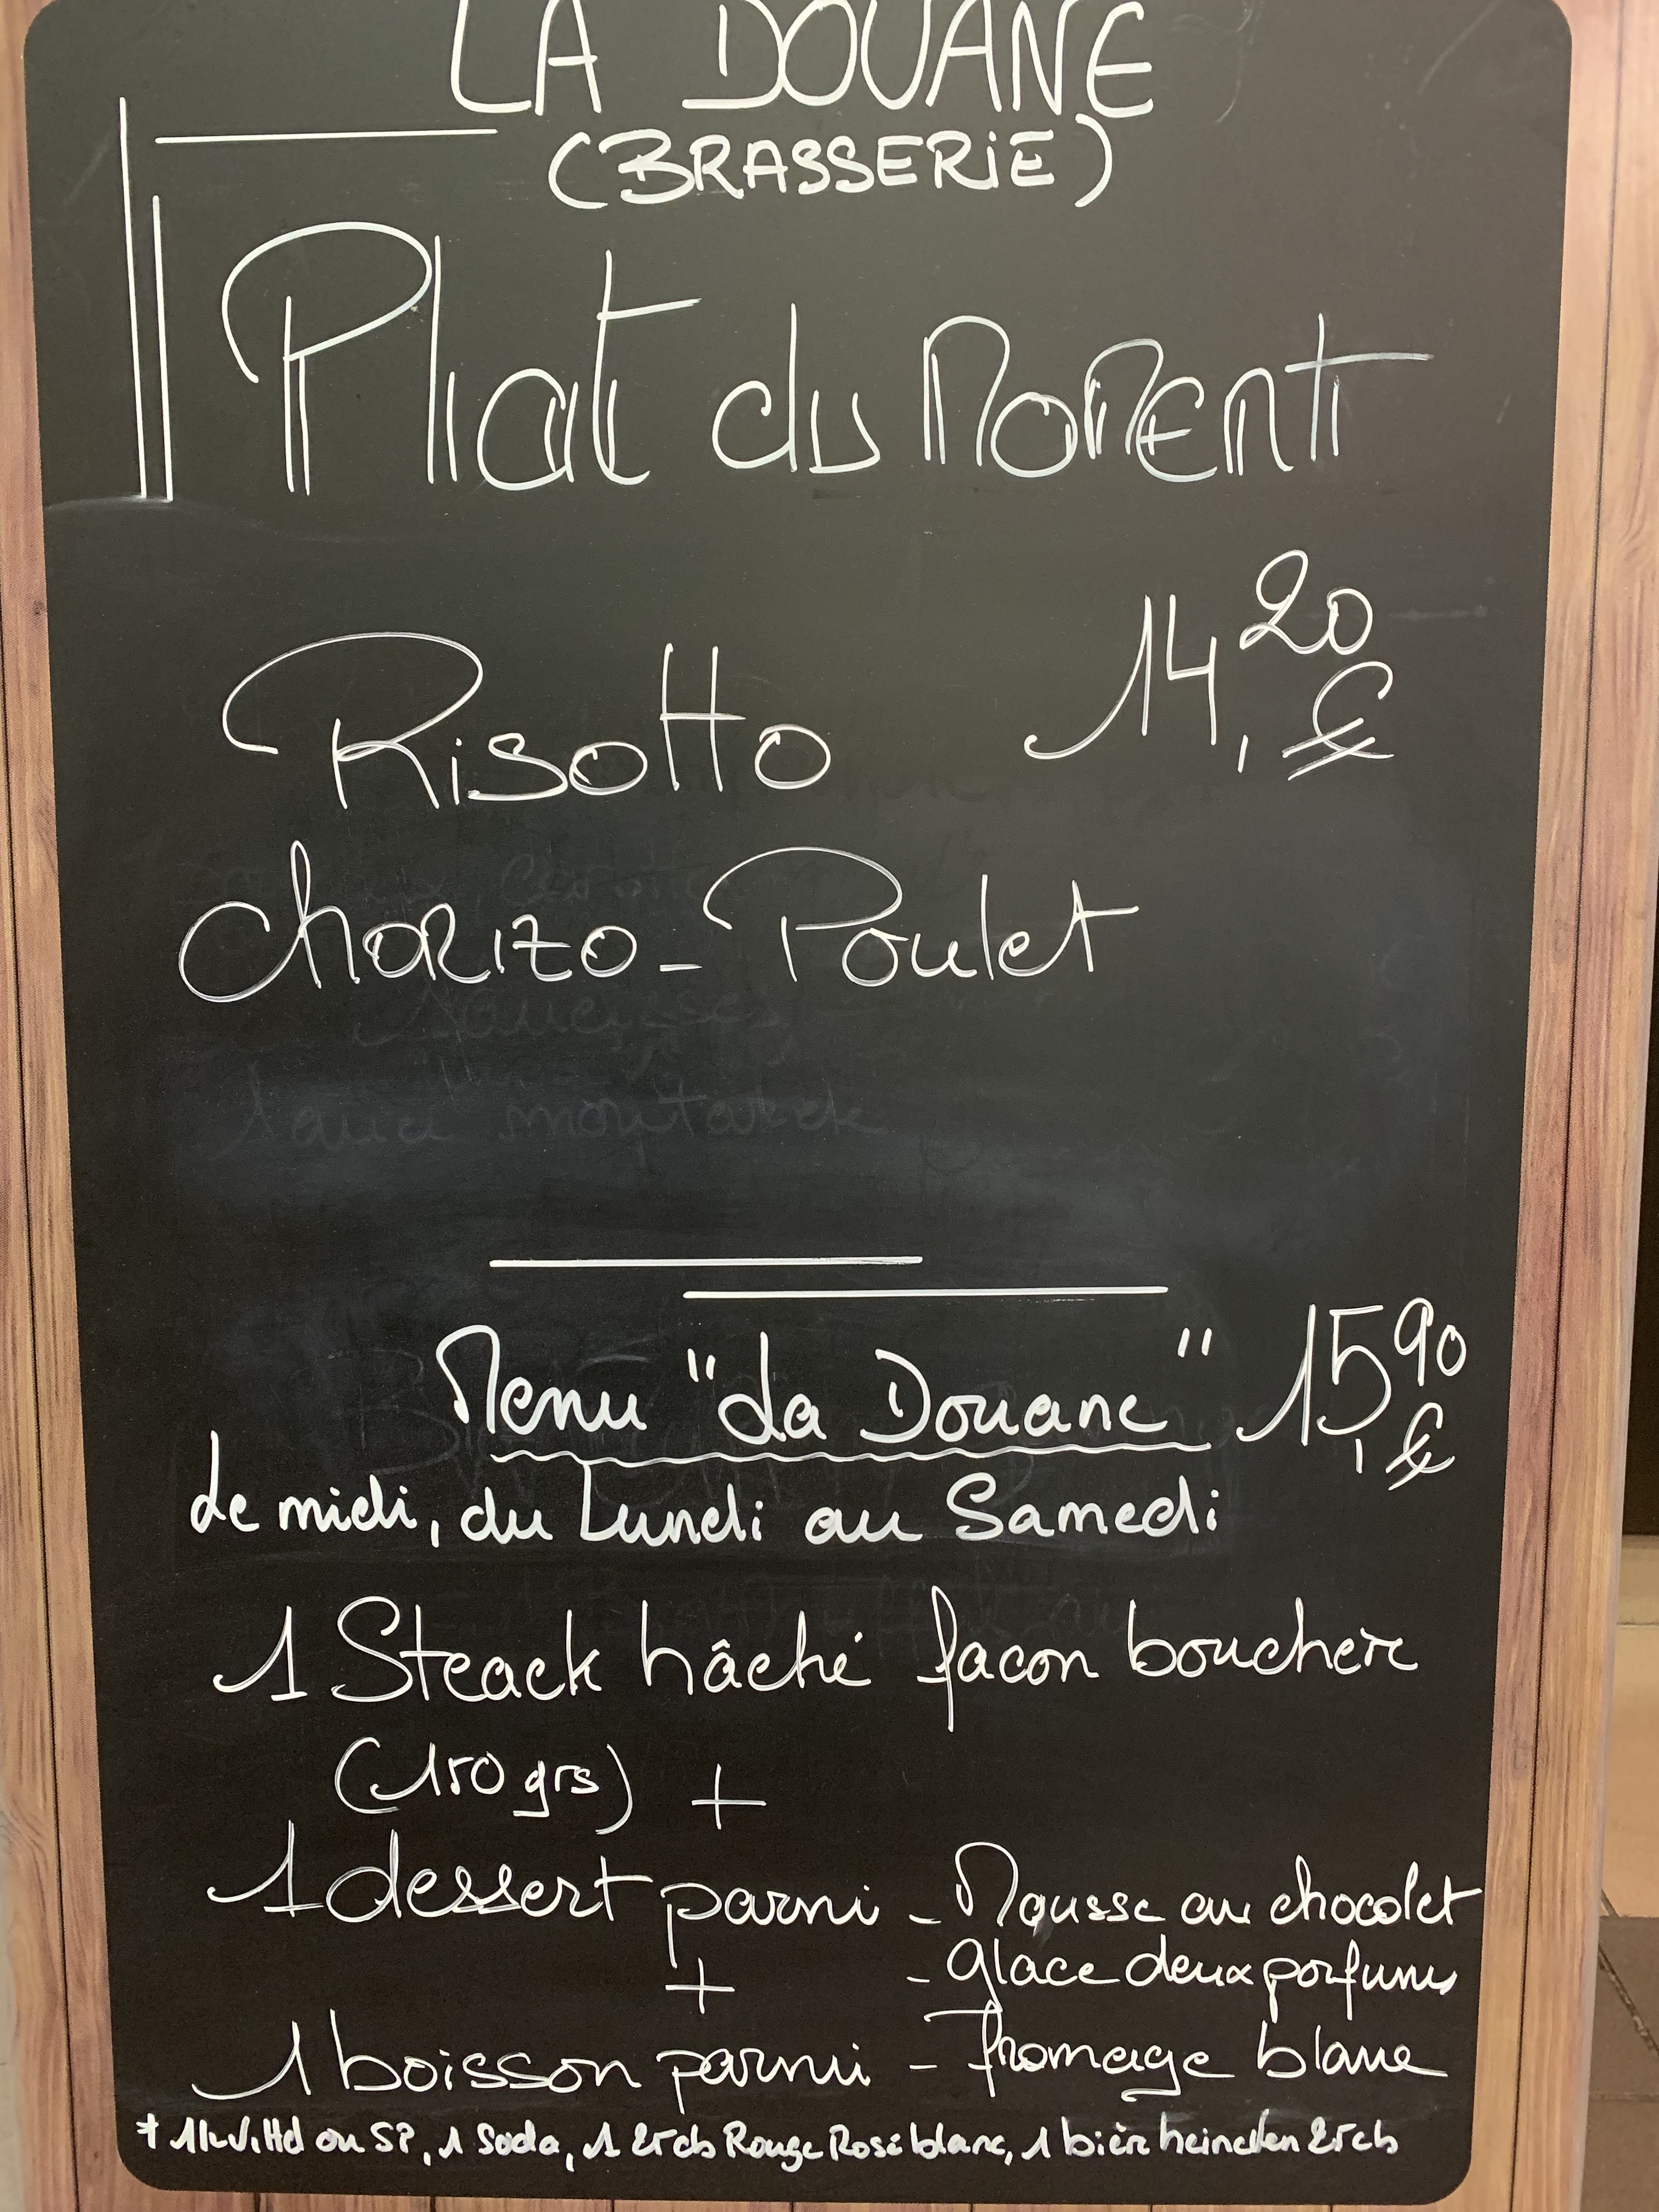 LA DOUANE
(BRASSERiE)
Plat du Moment
Risotto 14,20 €
Chorizo - Poulet
Menu "La Douane" 15,90 €
Le midi, du Lundi au Samedi
1 Steack hâché facon bouchère
(150 grs) +
1 dessert parmi - Mousse au chocolat
+ - Glace deux parfums
1 boisson parmi - Fromage blanc
* ou SP, 1 Soda, 1 25cls Rouge Rosé blanc, 1 bière heineken 25cls